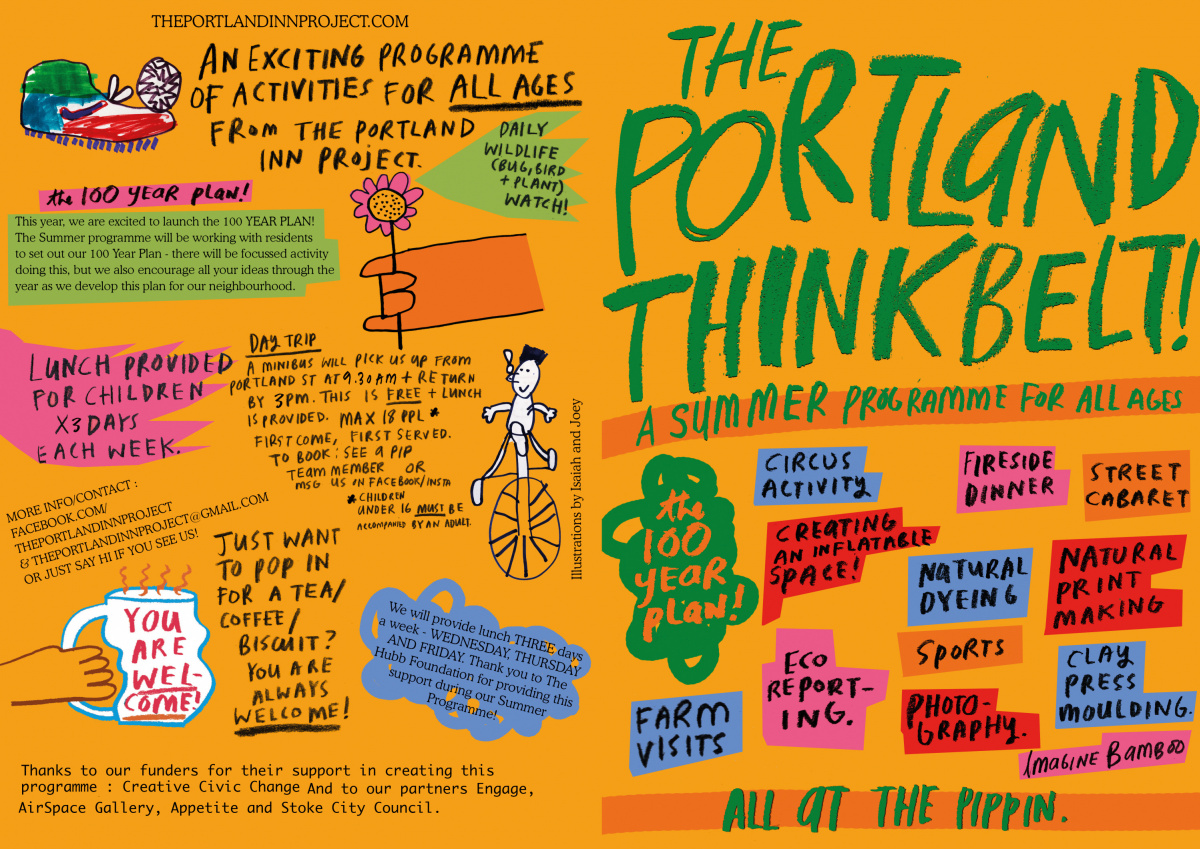 THEPORTLANDINNPROJECT.COM
AN EXCITING PROGRAMME
OF ACTIVITIES FOR ALL AGES
FROM THE PORTLAND
INN PROJECT.
DAILY
WILDLIFE
(BUG, BIRD
+ PLANT)
WATCH!
the 100 YEAR PLAN!
This year, we are excited to launch the 100 YEAR PLAN!
The Summer programme will be working with residents
to set out our 100 Year Plan - there will be focussed activity
doing this, but we also encourage all your ideas through the
year as we develop this plan for our neighbourhood.
LUNCH PROVIDED
FOR CHILDREN
X3 DAYS
EACH WEEK.
DAY TRIP
A MINIBUS WILL PICK US UP FROM
PORTLAND ST AT 9.30AM + RETURN
BY 3PM. THIS IS FREE + LUNCH
IS PROVIDED. MAX 18 PPL *
FIRST COME, FIRST SERVED.
TO BOOK: SEE A PIP
TEAM MEMBER OR
MSG US ON FACEBOOK/INSTA
* CHILDREN
UNDER 16 MUST BE
ACCOMPANIED BY AN ADULT.
Illustrations by Isaiah and Joey
MORE INFO/CONTACT :
FACEBOOK.COM/
THEPORTLANDINNPROJECT
& THEPORTLANDINNPROJECT@GMAIL.COM
OR JUST SAY HI IF YOU SEE US!
YOU
ARE
WEL-
COME!
JUST WANT
TO POP IN
FOR A TEA/
COFFEE/
BISCUIT?
YOU ARE
ALWAYS
WELCOME!
We will provide lunch THREE days
a week - WEDNESDAY, THURSDAY
AND FRIDAY. Thank you to The
Hubb Foundation for providing this
support during our Summer
Programme!
Thanks to our funders for their support in creating this
programme : Creative Civic Change And to our partners Engage,
AirSpace Gallery, Appetite and Stoke City Council.
THE
PORTLAND
THINKBELT!
A SUMMER PROGRAMME FOR ALL AGES
the
100
YEAR
PLAN!
CIRCUS
ACTIVITY
FIRESIDE
DINNER
STREET
CABARET
CREATING
AN INFLATABLE
SPACE!
NATURAL
DYEING
NATURAL
PRINT
MAKING
SPORTS
ECO
REPORT-
ING.
CLAY
PRESS
MOULDING.
FARM
VISITS
PHOTO-
GRAPHY.
IMAGINE BAMBOO
ALL AT THE PIPPIN.